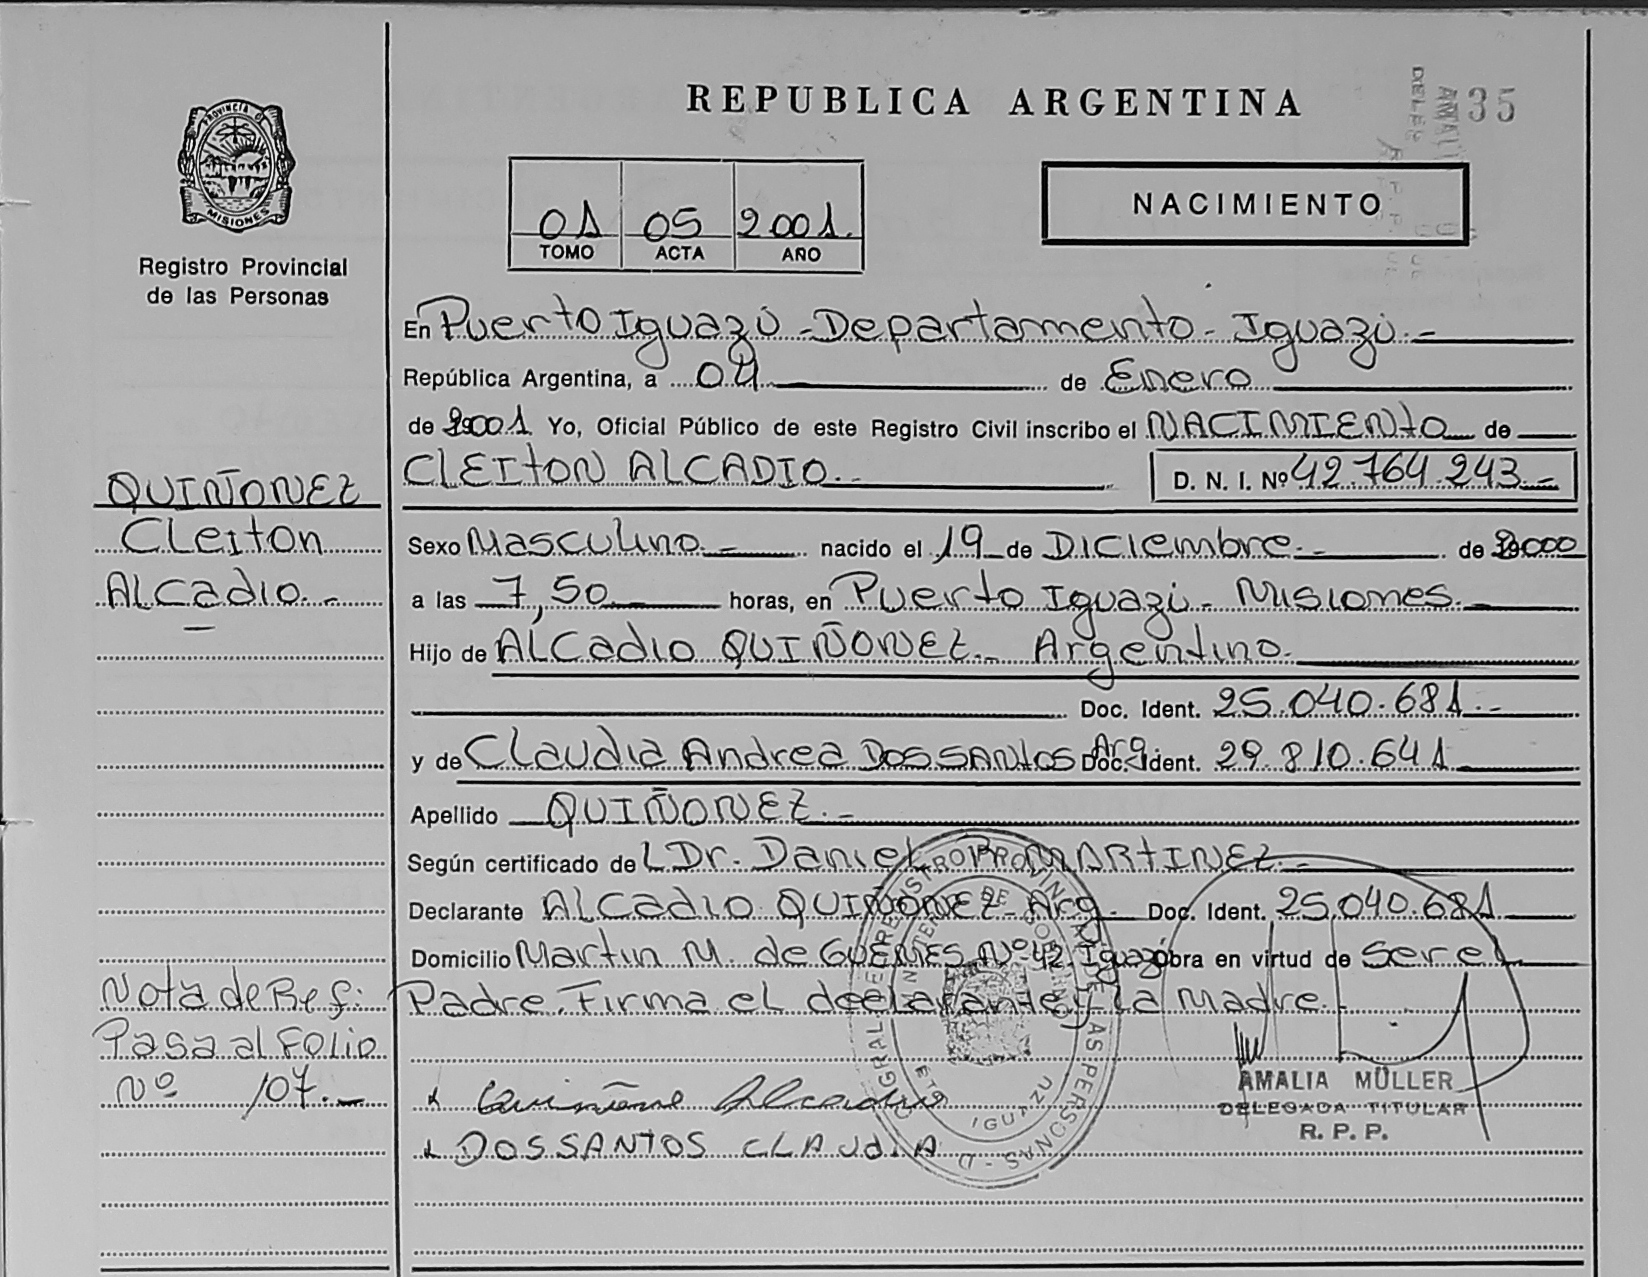 REPUBLICA ARGENTINA
35
PROVINCIA D
MISIONES
Registro Provincial
de las Personas
01 05 2001.
TOMO ACTA AÑO
NACIMIENTO
En Puerto Iguazú - Departamento - Iguazú. -
República Argentina, a 04 de Enero
de 2001 Yo, Oficial Público de este Registro Civil inscribo el NACIMIENTO de
CLEITON ALCADIO. - D. N. I. Nº 42.764.243. -
QUIÑONEZ
Cleiton
Alcadio. -
Sexo Masculino. - nacido el 19 de Diciembre. - de 2000
a las 7,50 horas, en Puerto Iguazú - Misiones. -
Hijo de Alcadio QUIÑONEZ. - Argentino.
Doc. Ident. 25.040.681. -
y de Claudia Andrea DOSSANTOS Arg. Doc. Ident. 29.810.641
Apellido QUIÑONEZ. -
Según certificado del Dr. Daniel R. MARTINEZ. -
Declarante ALCADIO QUIÑONEZ - Arg. Doc. Ident. 25.040.681
Domicilio Martin M. de GUEMES Nº 42. Iguazú obra en virtud de ser el
Padre. Firma el declarante y la Madre.
Nota de Ref:
Pasa al Folio
Nº 107. -
x Quiñone Alcadio
x DOSSANTOS CLAUDIA
IGUAZU
AMALIA MÜLLER
DELEGADA TITULAR
R. P. P.